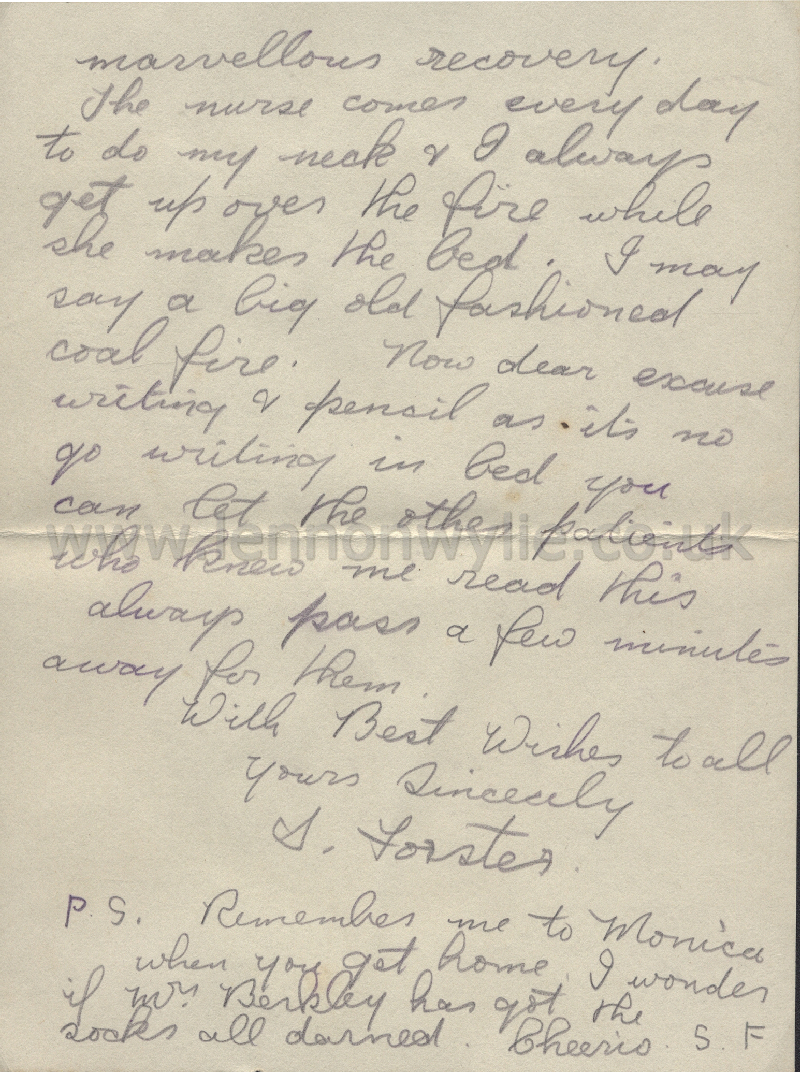 marvellous recovery.
The nurse comes every day
to do my neck & I always
get up over the fire while
she makes the bed. I may
say a big old fashioned
coal fire. Now dear excuse
writing & pencil as its no
go writing in bed you
can let the other patients
www.lennonwylie.co.uk
who knew me read this
always pass a few minutes
away for them.
With Best Wishes to all
Yours Sincerely
S. Forster.
P.S. Remember me to Monica
when you get home. I wonder
if Mrs Berkley has got the
socks all darned. Cheerio. S. F